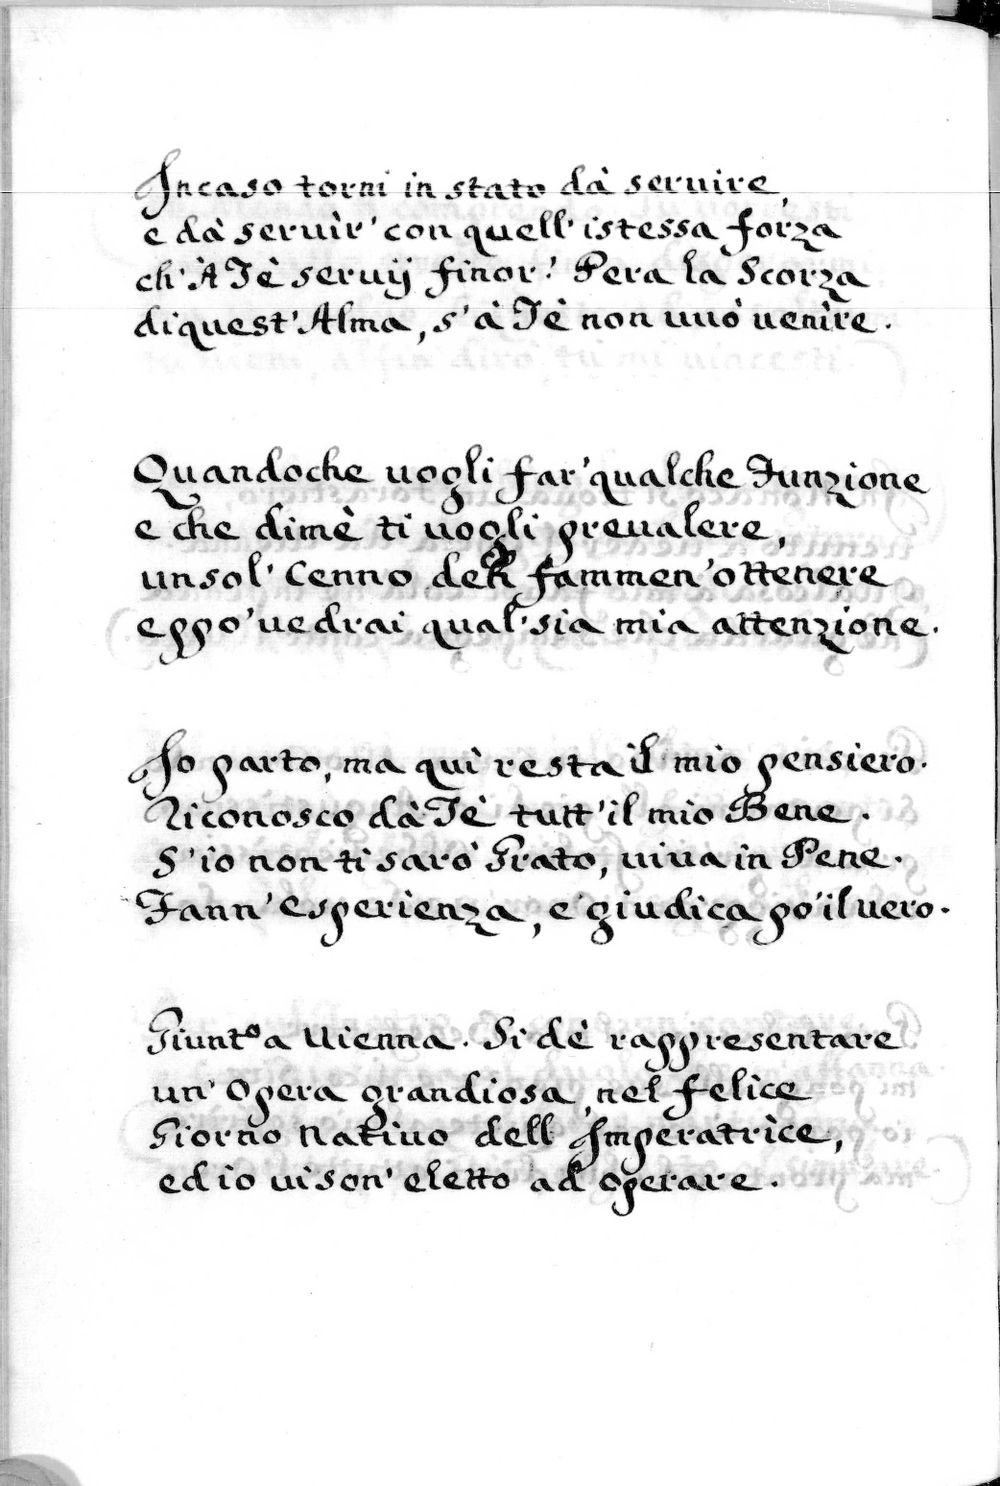 In caso torni in stato dà seruire,
e dà seruir' con quell' istessa forza
ch' À Tè seruÿ finor! Pera la Scorza
di quest' Alma, s' à Tè non uuò uenìre.
Quandoche uogli far' qualche Funzione
e che dimè ti uogli preualere,
un sol' Cenno deh fammen' ottenere
eppo' uedrai qual' sia mia attenzione.
Io parto, ma quì resta il mio pensiero.
Riconosco dà Tè tutt' il mio Bene.
S' io non ti sarò Grato, uiua in Pene.
Fann' esperienza, e' giudica po' il uero.
Giunto a Uienna. Si dè rappresentare
un' Opera grandiosa, nel felice
Giorno Natiuo dell Imperatrìce,
ed io ui son' eletto ad operare.